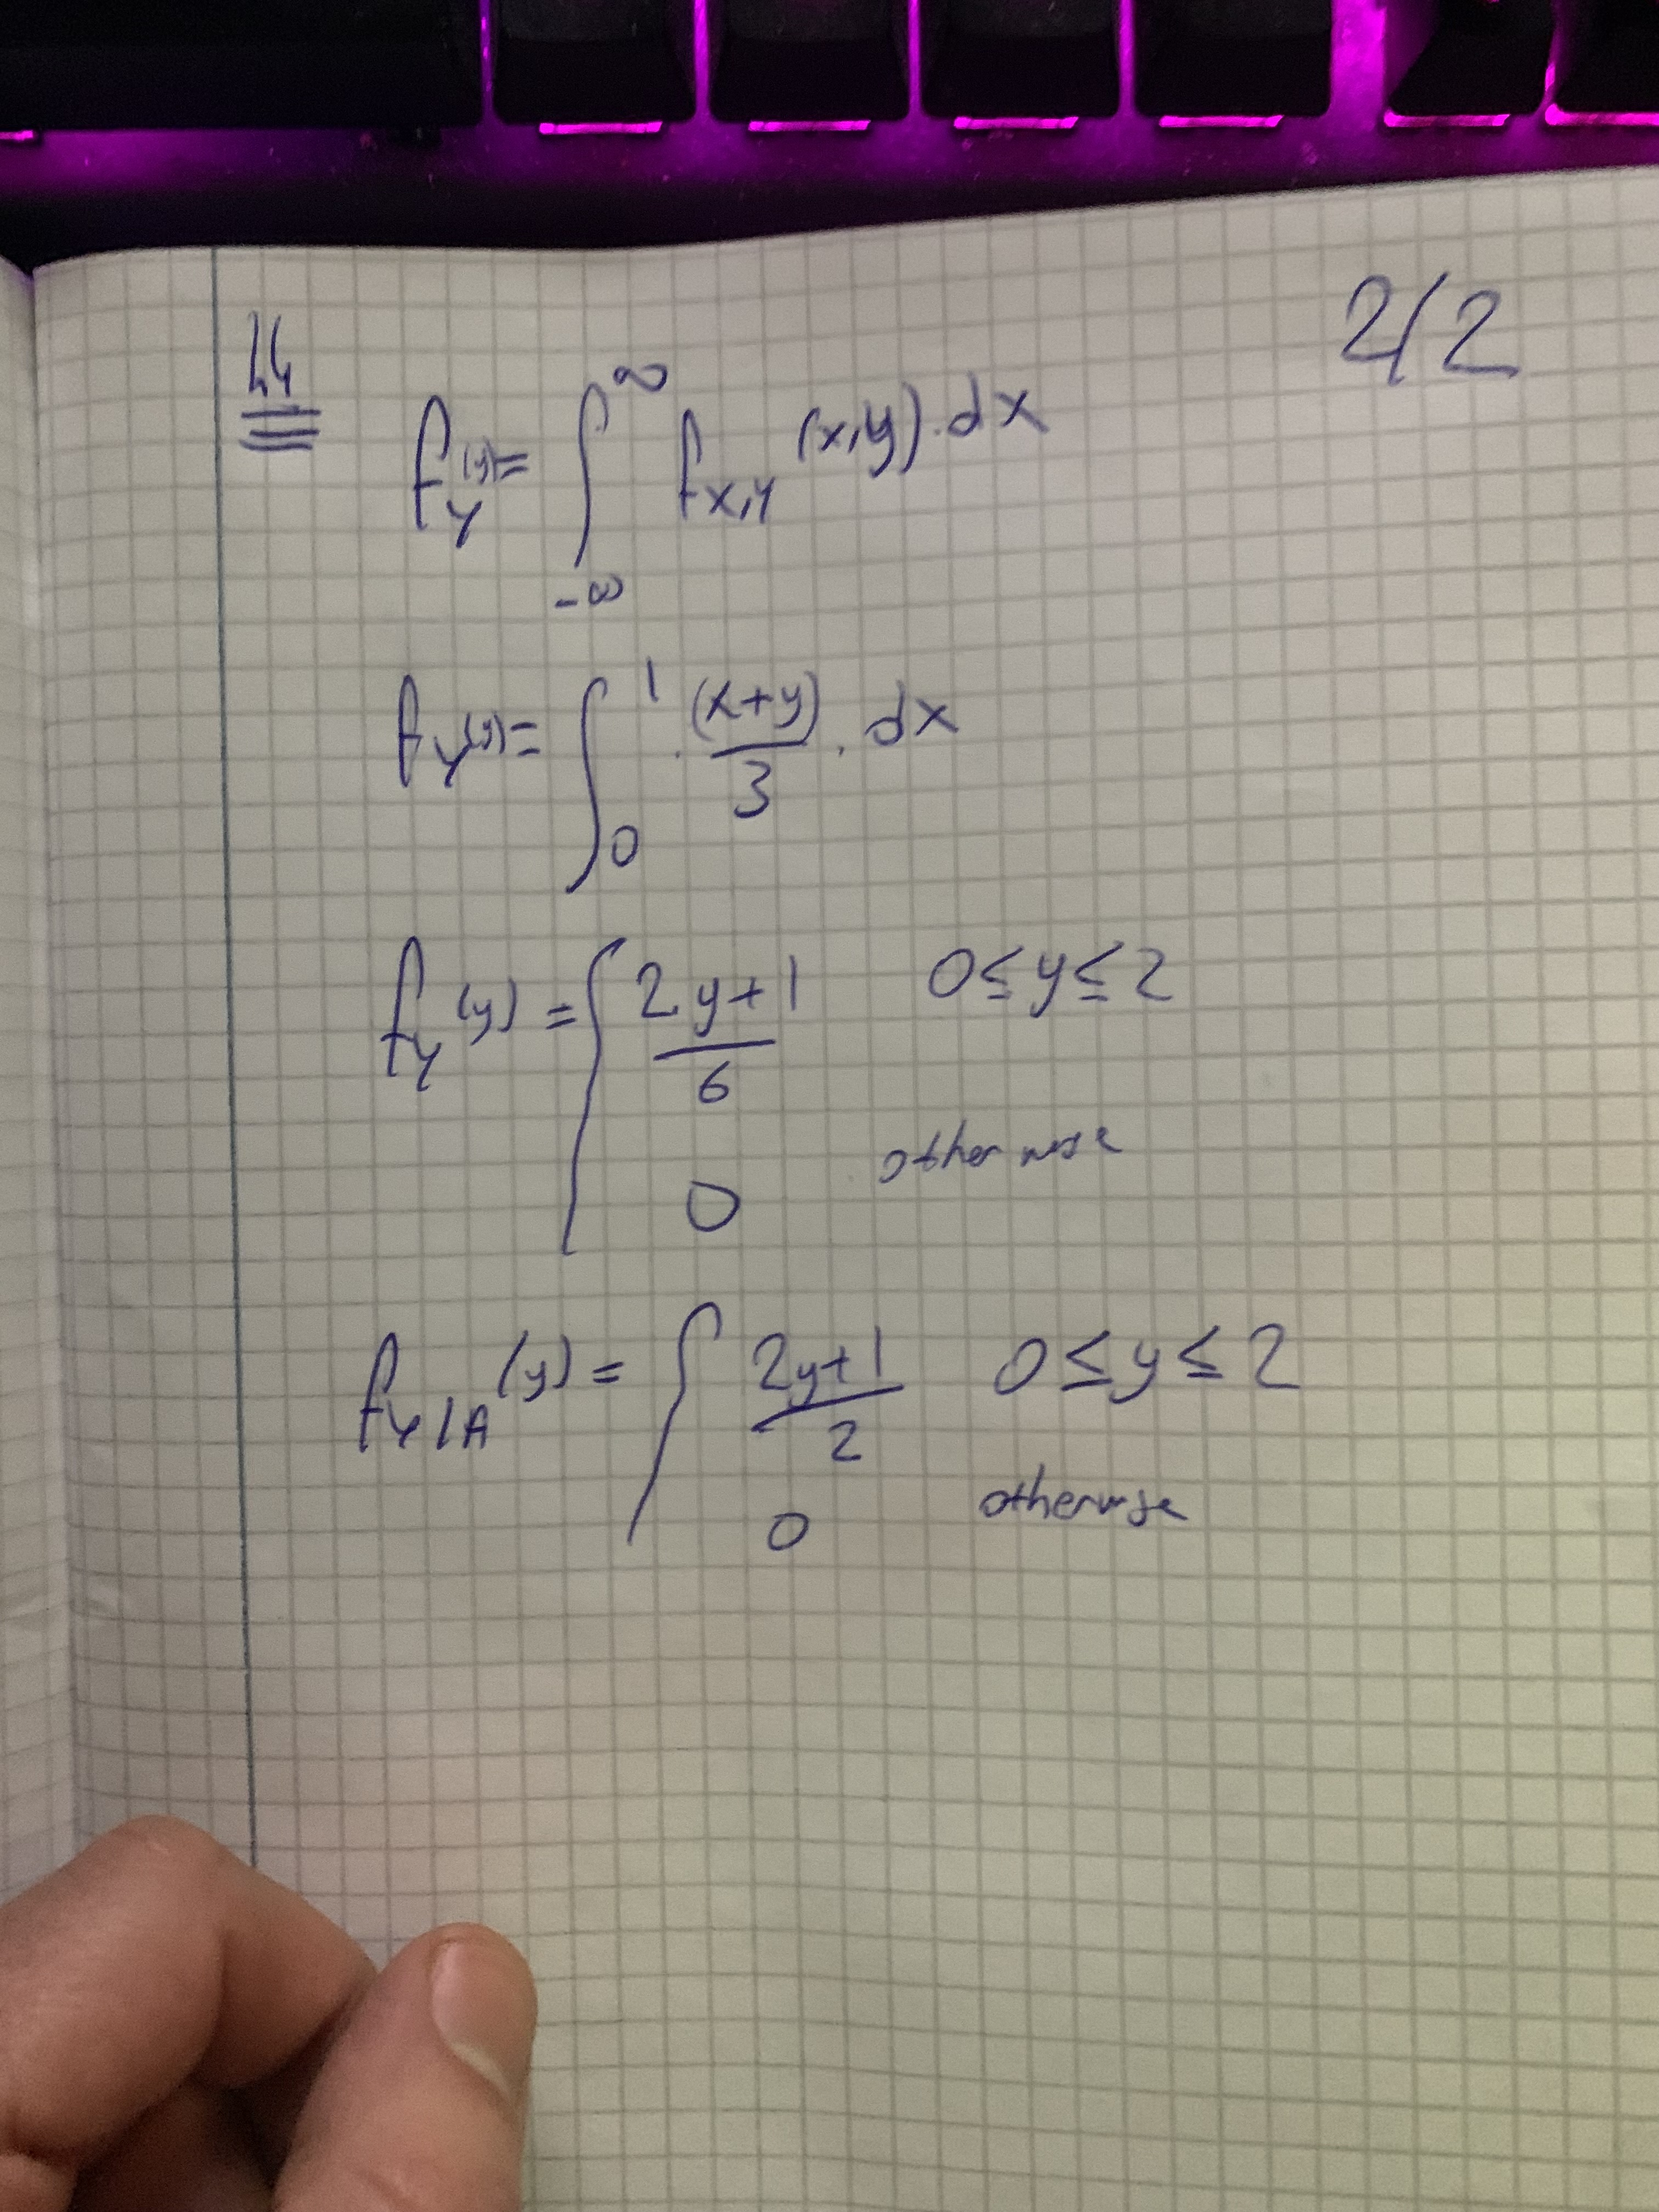 2/2
44
f_Y(y) = ∫_{-∞}^{∞} f_{X,Y}(x,y) · dx
f_Y(y) = ∫_0^1 · (x+y)/3 · dx
f_Y(y) = { (2y+1)/6 0 ≤ y ≤ 2
0 otherwise
f_{Y|A}(y) = { (2y+1)/2 0 ≤ y ≤ 2
0 otherwise